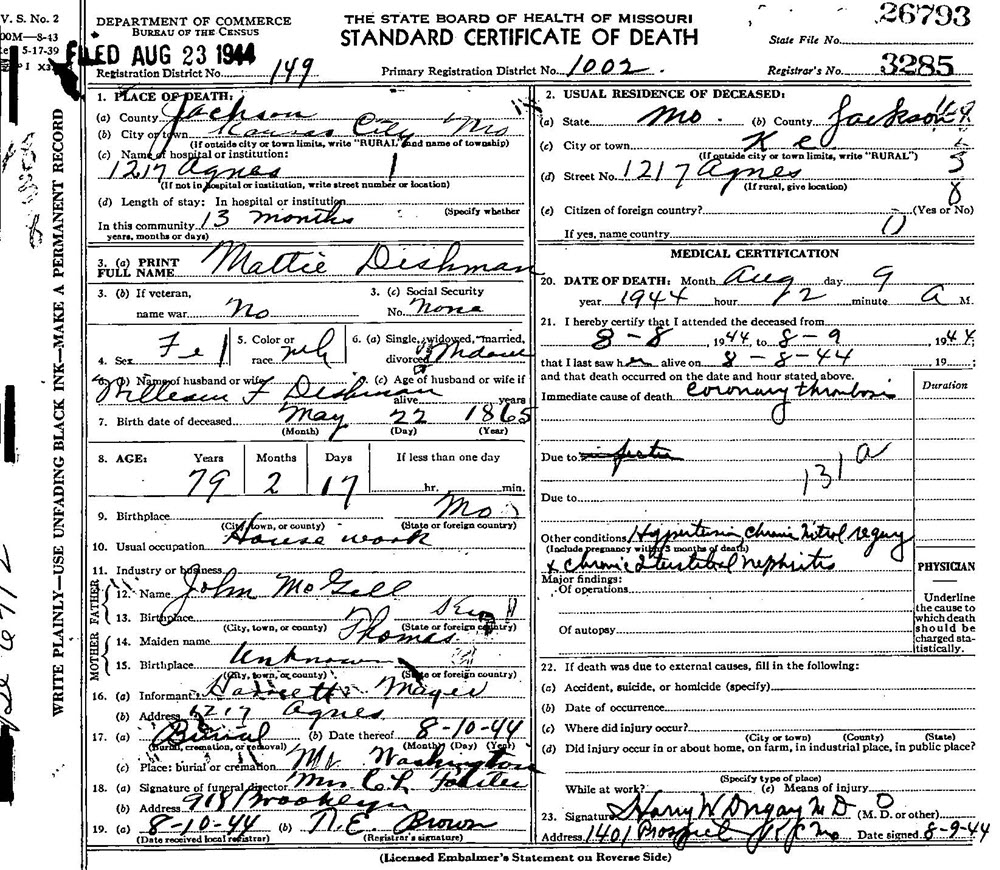 V. S. No. 2
00M—8-43
5-17-39
DEPARTMENT OF COMMERCE
BUREAU OF THE CENSUS
FILED AUG 23 1944
THE STATE BOARD OF HEALTH OF MISSOURI
STANDARD CERTIFICATE OF DEATH
26793
State File No.
Registration District No. 149
Primary Registration District No. 1002.
Registrar's No. 3285
WRITE PLAINLY—USE UNFADING BLACK INK—MAKE A PERMANENT RECORD
1. PLACE OF DEATH:
(a) County Jackson
(b) City or town Kansas City Mo
(If outside city or town limits, write "RURAL" and name of township)
(c) Name of hospital or institution:
1217 Agnes
(If not in hospital or institution, write street number or location)
(d) Length of stay: In hospital or institution
(Specify whether
In this community 13 months
years, months or days)
3. (a) PRINT FULL NAME Mattie Dishman
3. (b) If veteran, name war No
3. (c) Social Security No. None
4. Sex Fe
5. Color or race Wh
6. (a) Single, widowed, married, divorced Widow
6. (b) Name of husband or wife
(c) Age of husband or wife if alive years
William F Dishman
7. Birth date of deceased May 22 1865
(Month) (Day) (Year)
8. AGE: Years Months Days If less than one day
79 2 17 hr. min.
9. Birthplace Mo
(City, town, or county) (State or foreign country)
10. Usual occupation House work
11. Industry or business
FATHER
12. Name John McGill
13. Birthplace
(City, town, or county) (State or foreign country)
MOTHER
14. Maiden name Thomas
15. Birthplace Unknown
(City, town, or county) (State or foreign country)
16. (a) Informant Mayes
(b) Address 1217 Agnes
17. (a) Burial (b) Date thereof 8-10-44
(Burial, cremation, or removal) (Month) (Day) (Year)
(c) Place: burial or cremation Mt. Washington
18. (a) Signature of funeral director Mrs C. L.
(b) Address 918 Brooklyn
19. (a) 8-10-44 (b) N. E. Brown
(Date received local registrar) (Registrar's signature)
2. USUAL RESIDENCE OF DECEASED:
(a) State Mo. (b) County Jackson
(c) City or town K C
(If outside city or town limits, write "RURAL")
(d) Street No. 1217 Agnes
(If rural, give location)
(e) Citizen of foreign country? (Yes or No)
If yes, name country
MEDICAL CERTIFICATION
20. DATE OF DEATH: Month Aug day 9
year 1944 hour 12 minute A M.
21. I hereby certify that I attended the deceased from
8-8, 1944 to 8-9 1944
that I last saw her alive on 8-8-44 19 ;
and that death occurred on the date and hour stated above.
Duration
Immediate cause of death coronary thrombosis
Due to
131a
Due to
Other conditions Hypertension chronic mitral regurg
(Include pregnancy within 3 months of death)
+ chronic interstitial nephritis
PHYSICIAN
Major findings:
Of operations
Of autopsy
Underline the cause to which death should be charged statistically.
22. If death was due to external causes, fill in the following:
(a) Accident, suicide, or homicide (specify)
(b) Date of occurrence
(c) Where did injury occur?
(City or town) (County) (State)
(d) Did injury occur in or about home, on farm, in industrial place, in public place?
(Specify type of place)
While at work? (e) Means of injury
23. Signature Harry W M D (M. D. or other)
Address 1401 Prospect K C Mo Date signed 8-9-44
(Licensed Embalmer's Statement on Reverse Side)